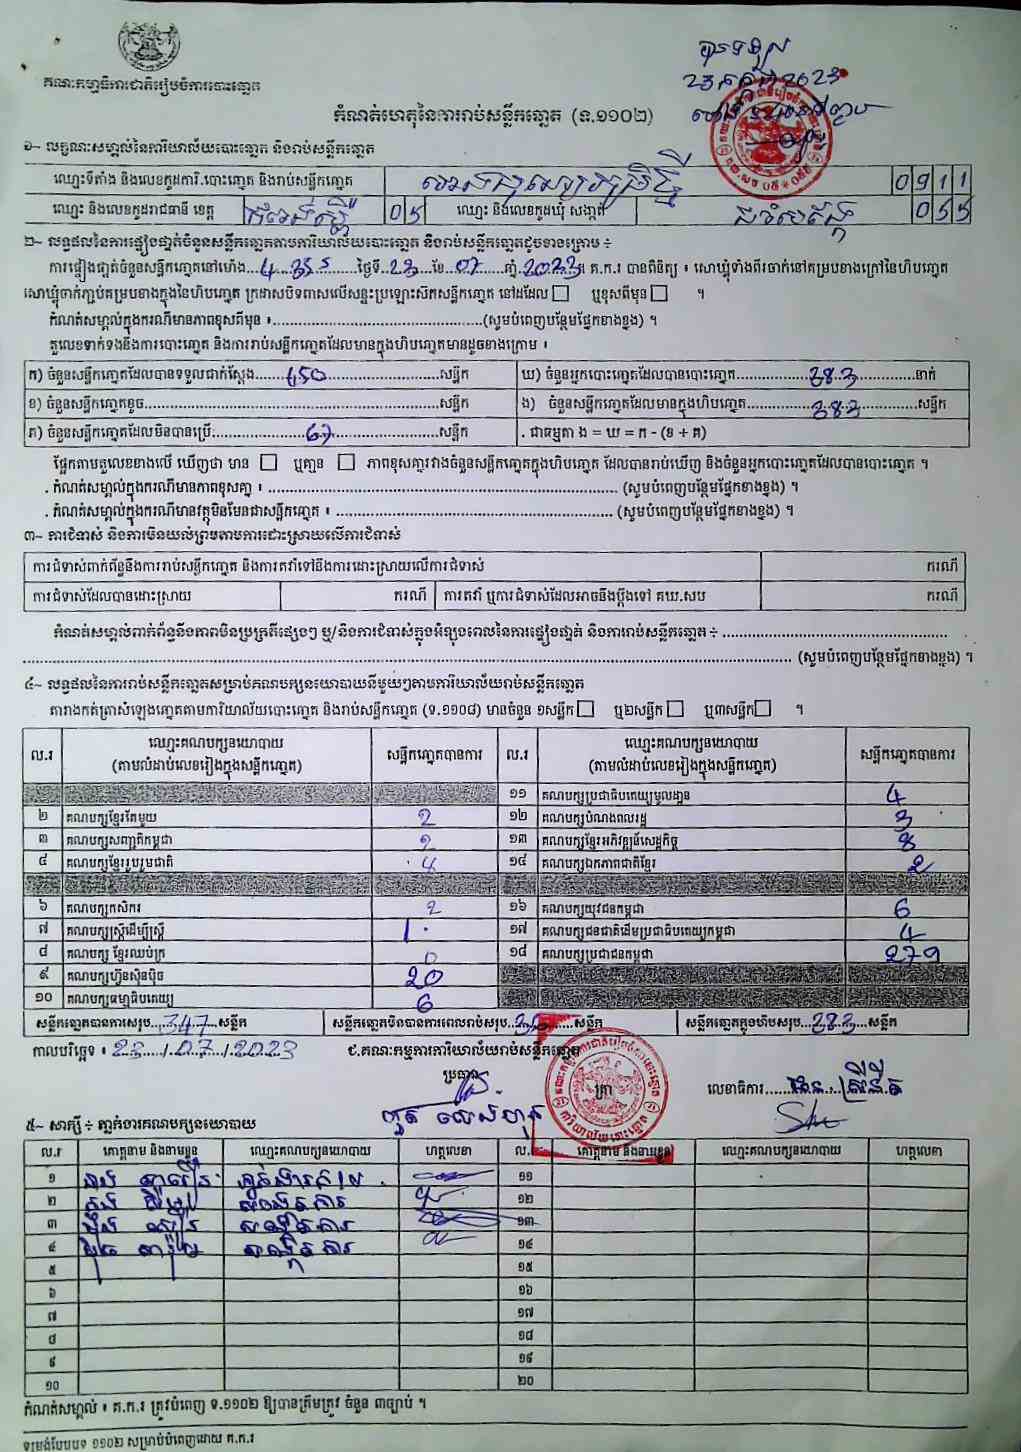 គណៈកម្មាធិការជាតិរៀបចំការបោះឆ្នោត
២៣ កក្កដា 2023
កំណត់ហេតុនៃការរាប់សន្លឹកឆ្នោត (ទ.១១០២)
១~ លក្ខណៈសម្គាល់នៃការិយាល័យបោះឆ្នោត និងរាប់សន្លឹកឆ្នោត
ឈ្មោះទីតាំង និងលេខកូដការិ.បោះឆ្នោត និងរាប់សន្លឹកឆ្នោត 0911
ឈ្មោះ និងលេខកូដរាជធានី ខេត្ត កំពង់ស្ពឺ 05 ឈ្មោះ និងលេខកូដឃុំ សង្កាត់ 055
២~ លទ្ធផលនៃការផ្ទៀងផ្ទាត់ចំនួនសន្លឹកឆ្នោតតាមការិយាល័យបោះឆ្នោត និងរាប់សន្លឹកឆ្នោតដូចខាងក្រោម ÷
ការផ្ទៀងផ្ទាត់ចំនួនសន្លឹកឆ្នោតនៅម៉ោង ថ្ងៃទី 23 ខែ 07 ឆ្នាំ 2023 គ.ក.រ បានពិនិត្យ ៖ សោឃ្លុំទាំងពីរចាក់នៅគម្របខាងក្រៅនៃហិបឆ្នោត
សោឃ្លុំចាក់ភ្ជាប់គម្របខាងក្នុងនៃហិបឆ្នោត ក្រដាសបិទពាសលើសន្ទះប្រឡោះស៊កសន្លឹកឆ្នោត នៅដដែល ☐ ឬខុសពីមុន ☐ ។
កំណត់សម្គាល់ក្នុងករណីមានភាពខុសពីមុន ៖ (សូមបំពេញបន្ថែមផ្នែកខាងខ្នង) ។
តួលេខទាក់ទងនឹងការបោះឆ្នោត និងការរាប់សន្លឹកឆ្នោតដែលមានក្នុងហិបឆ្នោតមានដូចខាងក្រោម ៖
ក) ចំនួនសន្លឹកឆ្នោតដែលបានទទួលជាក់ស្តែង 450 សន្លឹក ឃ) ចំនួនអ្នកបោះឆ្នោតដែលបានបោះឆ្នោត 383 នាក់
ខ) ចំនួនសន្លឹកឆ្នោតខូច សន្លឹក ង) ចំនួនសន្លឹកឆ្នោតដែលមានក្នុងហិបឆ្នោត 383 សន្លឹក
គ) ចំនួនសន្លឹកឆ្នោតដែលមិនបានប្រើ 67 សន្លឹក . ជាធម្មតា ង = ឃ = ក - (ខ + គ)
ផ្អែកតាមតួលេខខាងលើ ឃើញថា មាន ☐ ឬគ្មាន ☐ ភាពខុសគ្នារវាងចំនួនសន្លឹកឆ្នោតក្នុងហិបឆ្នោត ដែលបានរាប់ឃើញ និងចំនួនអ្នកបោះឆ្នោតដែលបានបោះឆ្នោត ។
. កំណត់សម្គាល់ក្នុងករណីមានភាពខុសគ្នា ៖ (សូមបំពេញបន្ថែមផ្នែកខាងខ្នង) ។
. កំណត់សម្គាល់ក្នុងករណីមានវត្ថុមិនមែនជាសន្លឹកឆ្នោត ៖ (សូមបំពេញបន្ថែមផ្នែកខាងខ្នង) ។
៣~ ការជំទាស់ និងការមិនយល់ព្រមតាមការដោះស្រាយលើការជំទាស់
ការជំទាស់ពាក់ព័ន្ធនឹងការរាប់សន្លឹកឆ្នោត និងការតវ៉ាទៅនឹងការដោះស្រាយលើការជំទាស់ ករណី
ការជំទាស់ដែលបានដោះស្រាយ ករណី ការតវ៉ា ឬការជំទាស់ដែលអាចនឹងប្តឹងទៅ គឃ.សប ករណី
កំណត់សម្គាល់ពាក់ព័ន្ធនឹងភាពមិនប្រក្រតីផ្សេងៗ ឬ/និងការជំទាស់ក្នុងអំឡុងពេលនៃការផ្ទៀងផ្ទាត់ និងការរាប់សន្លឹកឆ្នោត ÷
(សូមបំពេញបន្ថែមផ្នែកខាងខ្នង) ។
៤~ លទ្ធផលនៃការរាប់សន្លឹកឆ្នោតសម្រាប់គណបក្សនយោបាយនីមួយៗតាមការិយាល័យរាប់សន្លឹកឆ្នោត
តារាងកត់ត្រាសំឡេងឆ្នោតតាមការិយាល័យបោះឆ្នោត និងរាប់សន្លឹកឆ្នោត (ទ.១១០៨) មានចំនួន ១សន្លឹក ☐ ឬ២សន្លឹក ☐ ឬ៣សន្លឹក ☐ ។
ល.រ ឈ្មោះគណបក្សនយោបាយ (តាមលំដាប់លេខរៀងក្នុងសន្លឹកឆ្នោត) សន្លឹកឆ្នោតបានការ ល.រ ឈ្មោះគណបក្សនយោបាយ (តាមលំដាប់លេខរៀងក្នុងសន្លឹកឆ្នោត) សន្លឹកឆ្នោតបានការ
១១ គណបក្សប្រជាធិបតេយ្យមូលដ្ឋាន 4
២ គណបក្សខ្មែរតែមួយ 2 ១២ គណបក្សបំណងពលរដ្ឋ 3
៣ គណបក្សសញ្ជាតិកម្ពុជា 1 ១៣ គណបក្សខ្មែរអភិវឌ្ឍន៍សេដ្ឋកិច្ច 8
៤ គណបក្សខ្មែររួបរួមជាតិ 4 ១៤ គណបក្សឯកភាពជាតិខ្មែរ 2
៦ គណបក្សកសិករ 2 ១៦ គណបក្សយុវជនកម្ពុជា 6
៧ គណបក្សស្ត្រីដើម្បីស្ត្រី 1 ១៧ គណបក្សជនជាតិដើមប្រជាធិបតេយ្យកម្ពុជា 4
៨ គណបក្ស ខ្មែរឈប់ក្រ 0 ១៨ គណបក្សប្រជាជនកម្ពុជា 279
៩ គណបក្សហ៊្វុនស៊ិនប៉ិច 20
១០ គណបក្សធម្មាធិបតេយ្យ 6
សន្លឹកឆ្នោតបានការសរុប 347 សន្លឹក សន្លឹកឆ្នោតមិនបានការពេលរាប់សរុប សន្លឹក សន្លឹកឆ្នោតក្នុងហិបសរុប 383 សន្លឹក
កាលបរិច្ឆេទ ៖ 23/07/2023 ជ.គណៈកម្មការការិយាល័យរាប់សន្លឹកឆ្នោត
ប្រធាន
ត្រា
លេខាធិការ
៥~ សាក្សី ÷ ភ្នាក់ងារគណបក្សនយោបាយ
ល.រ គោត្តនាម និងនាមខ្លួន ឈ្មោះគណបក្សនយោបាយ ហត្ថលេខា ល.រ គោត្តនាម និងនាមខ្លួន ឈ្មោះគណបក្សនយោបាយ ហត្ថលេខា
១ ១១
២ ១២
៣ ១៣
៤ ១៤
៥ ១៥
៦ ១៦
៧ ១៧
៨ ១៨
៩ ១៩
១០ ២០
កំណត់សម្គាល់ ៖ គ.ក.រ ត្រូវបំពេញ ទ.១១០២ ឱ្យបានត្រឹមត្រូវ ចំនួន ៣ច្បាប់ ។
ទម្រង់បែបបទ ១១០២ សម្រាប់បំពេញដោយ គ.ក.រ